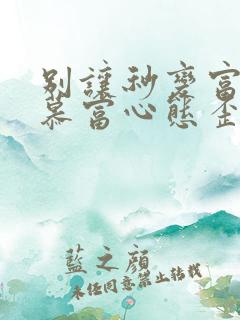 別讓秒變富
慕富心態歪
藍之顏
未任同意禁止转载